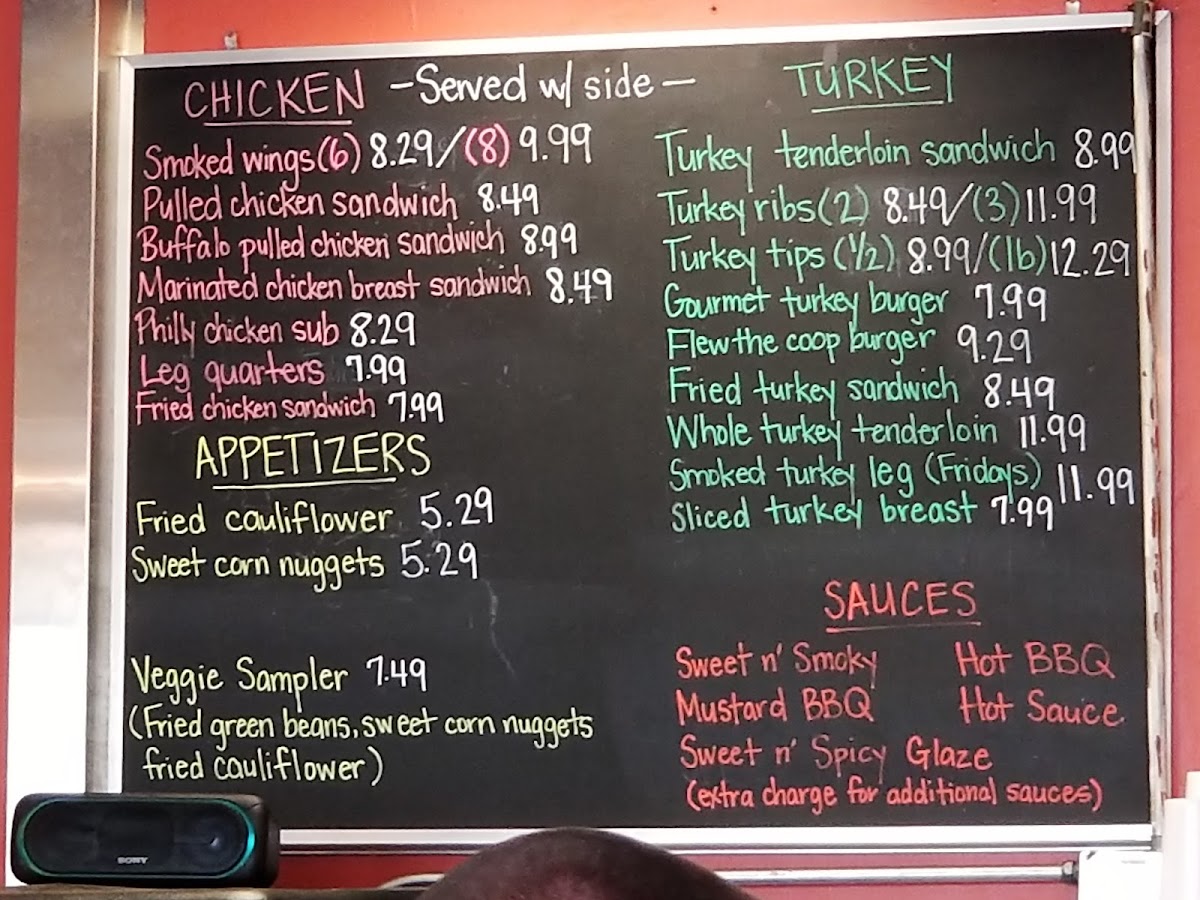 CHICKEN -Served w/ side-
Smoked wings (6) 8.29/(8) 9.99
Pulled chicken sandwich 8.49
Buffalo pulled chicken sandwich 8.99
Marinated chicken breast sandwich 8.49
Philly chicken sub 8.29
Leg quarters 7.99
Fried chicken sandwich 7.99
APPETIZERS
Fried cauliflower 5.29
Sweet corn nuggets 5.29
Veggie Sampler 7.49
(Fried green beans, sweet corn nuggets
fried cauliflower)
TURKEY
Turkey tenderloin sandwich 8.99
Turkey ribs (2) 8.49/(3) 11.99
Turkey tips (1/2) 8.99/(1b) 12.29
Gourmet turkey burger 7.99
Flew the coop burger 9.29
Fried turkey sandwich 8.49
Whole turkey tenderloin 11.99
Smoked turkey leg (Fridays) 11.99
Sliced turkey breast 7.99
SAUCES
Sweet n' Smoky Hot BBQ
Mustard BBQ Hot Sauce
Sweet n' Spicy Glaze
(extra charge for additional sauces)
SONY